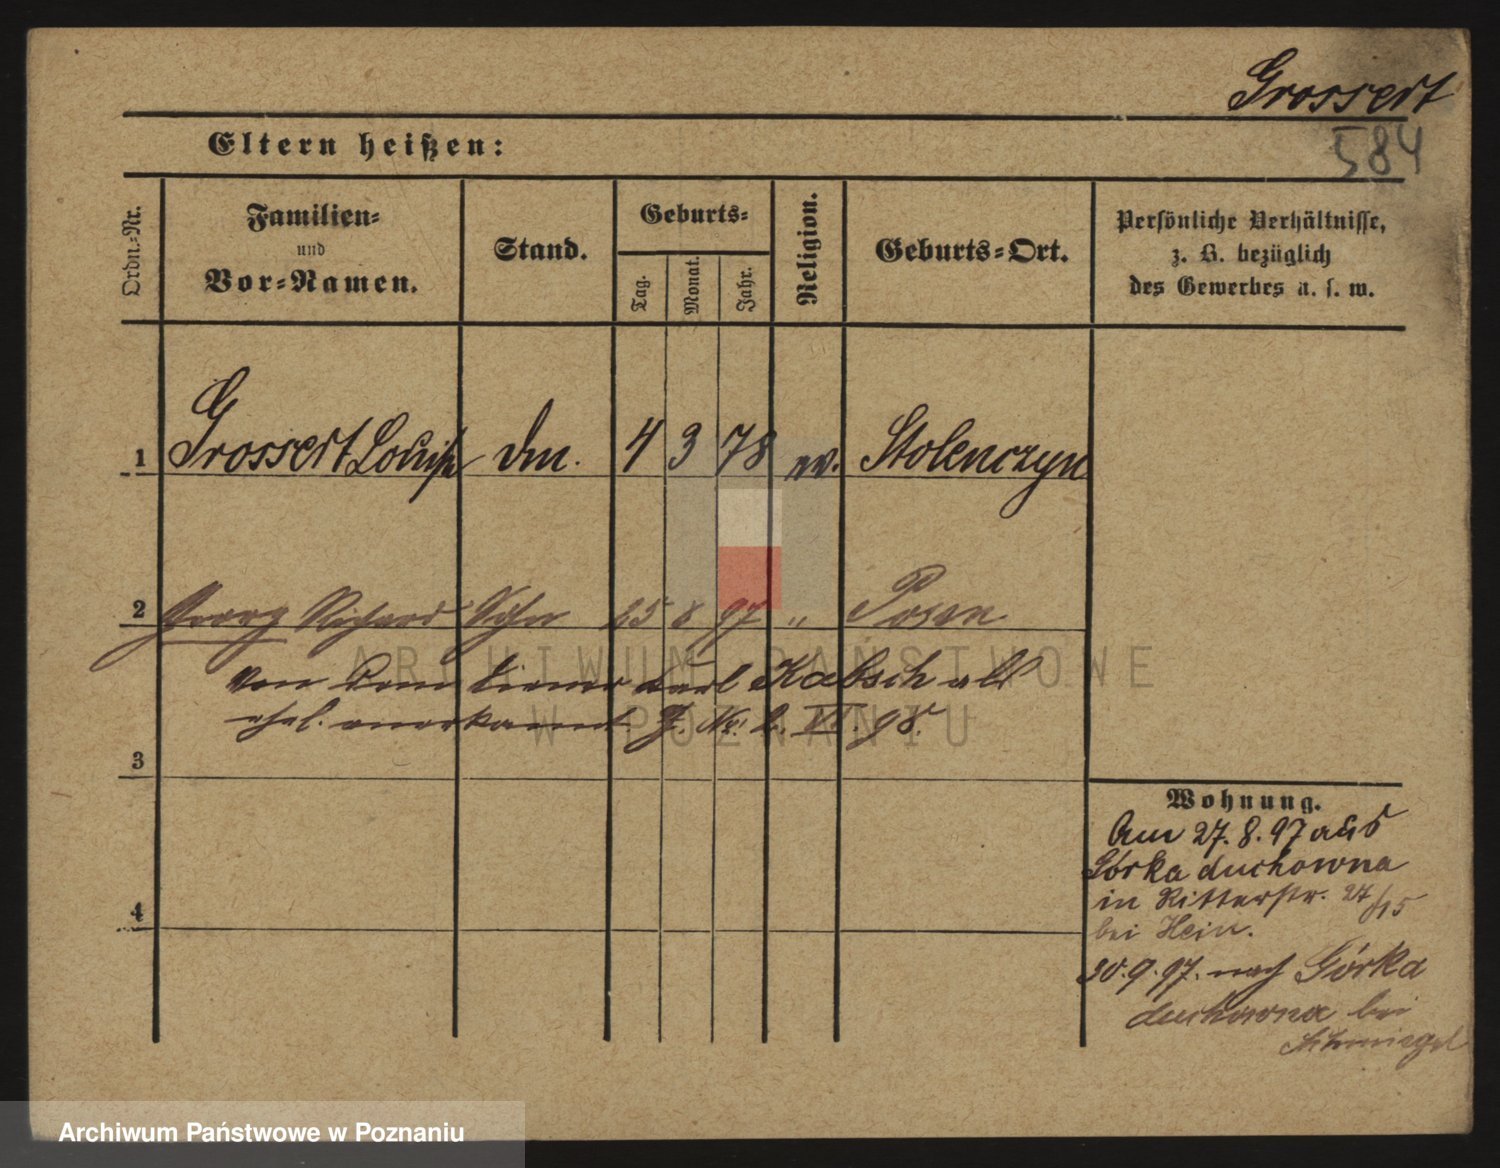 Grossert
584
Eltern heißen:
Ordn.-Nr.
Familien-
und
Vor-Namen.
Stand.
Geburts-
Tag.
Monat.
Jahr.
Religion.
Geburts-Ort.
Persönliche Verhältnisse,
z. B. bezüglich
des Gewerbes u. s. w.
1 Grossert Louise 4 3 78 ev. Stolenczyn
2 Georg Richard Sohn 25 8 97 „ Posen
von dem Diener Karl Kabsch als
ehel. anerkannt J. No. 2. VI. 98.
3
4
Wohnung.
Am 27. 8. 97 aus
Górka duchowna
in Ritterstr. 27/15
bei Hein.
30. 9. 97. nach Górka
duchowna bei
Schmiegel
ARCHIWUM PAŃSTWOWE
W POZNANIU
Archiwum Państwowe w Poznaniu